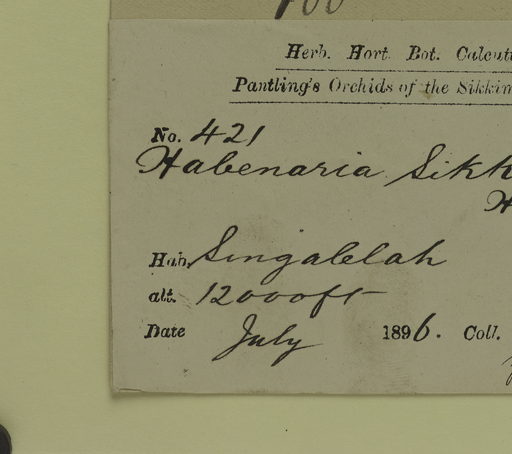 Herb. Hort. Bot. Calcut
Pantling's Orchids of the Sikkim
No. 421
Habenaria Sikk
H
Hab. Singalelah
alt. 12000ft
Date July 1896. Coll.